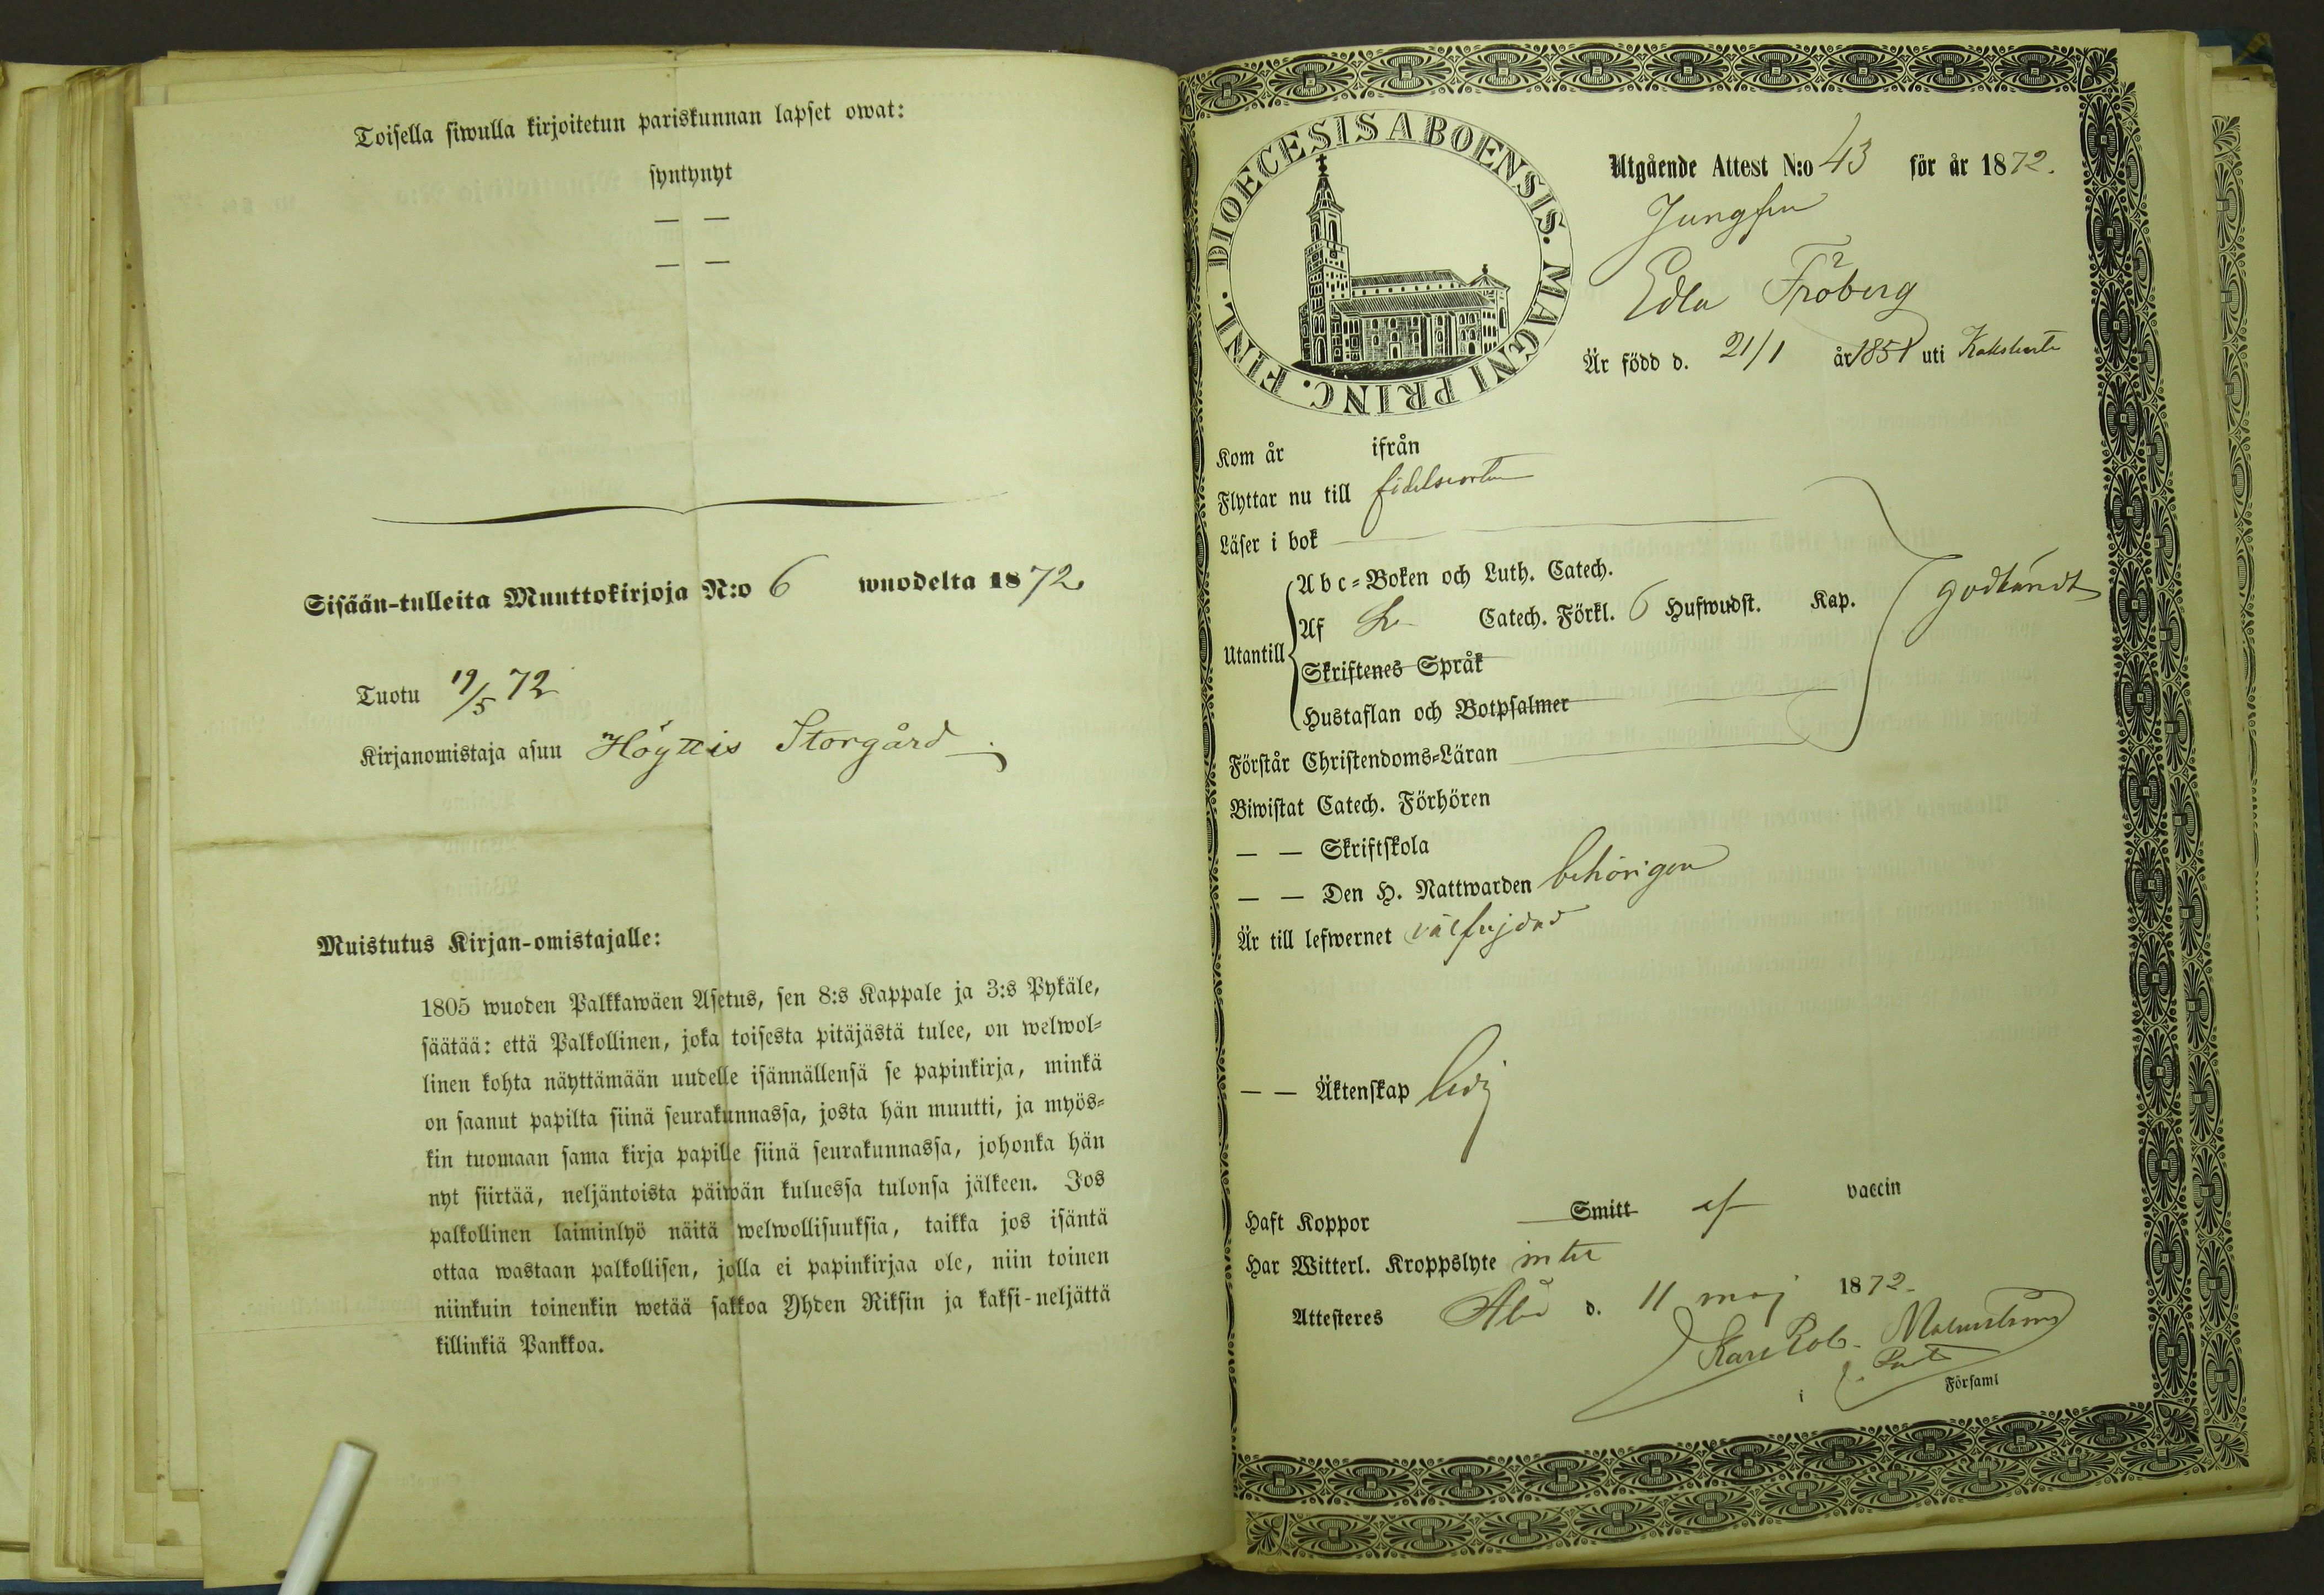 Toisella siwulla kirjoitetun pariskunnan lapset owat:
syntynyt
— —
— —
Sisään-tulleita Muuttokirjoja N:o 6 wuodelta 1872
Tuotu 19/5 72
Kirjanomistaja asuu Höyttis Storgård
Muistutus Kirjan-omistajalle:
1805 wuoden Palkkawäen Asetus, sen 8:s Kappale ja 3:s Pykäle,
säätää: että Palkollinen, joka toisesta pitäjästä tulee, on welwol-
linen kohta näyttämään uudelle isännällensä se papinkirja, minkä
on saanut papilta siinä seurakunnassa, josta hän muutti, ja myös-
kin tuomaan sama kirja papille siinä seurakunnassa, johonka hän
nyt siirtää, neljäntoista päiwän kuluessa tulonsa jälkeen. Jos
palkollinen laiminlyö näitä welwollisuuksia, taikka jos isäntä
ottaa wastaan palkollisen, jolla ei papinkirjaa ole, niin toinen
niinkuin toinenkin wetää sakkoa Yhden Riksin ja kaksi-neljättä
killinkiä Pankkoa.
DIOECESIS ABOENSIS. MAGNI PRINC. FINL.
Utgående Attest N:o 43 för år 1872.
Jungfru
Edla Fröberg
Är född d. 21/1 år 1851 uti
Kom år ifrån
Flyttar nu till födelseorten
Läser i bok
Utantill
Abc-Boken och Luth. Catech.
Af Catech. Förkl. 6 Hufwudst. Kap. godkändt
Skriftenes Språk
Hustaflan och Botpsalmer
Förstår Christendoms-Läran
Biwistat Catech. Förhören
— — Skriftskola
— — Den H. Nattwarden behörigen
Är till lefwernet välfrejdad
— — Äktenskap ledig
Haft Koppor Smitt ef vaccin
Har Witterl. Kroppslyte intet
Attesteres Åbo d. 11 maj 1872.
Karl Rob. Malmström
i Församl